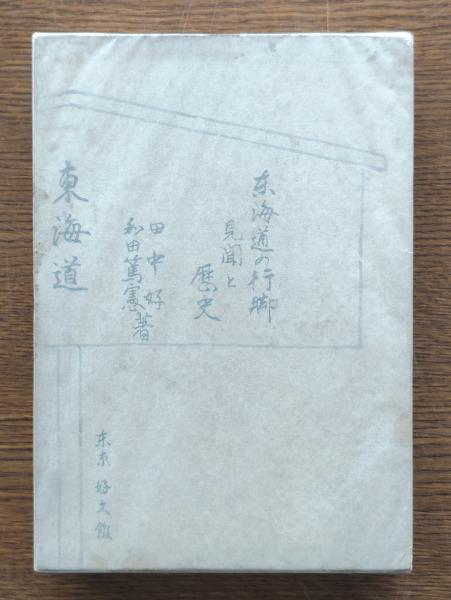 東海道の行脚
見聞と
歴史
田中好
和田篤憲著
東海道
東京 好文館